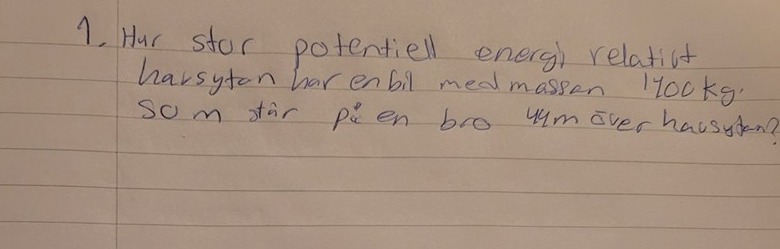 1. Hur stor potentiell energi relativt
havsytan har en bil med massan 1400 kg.
som står på en bro 44m över havsytan?